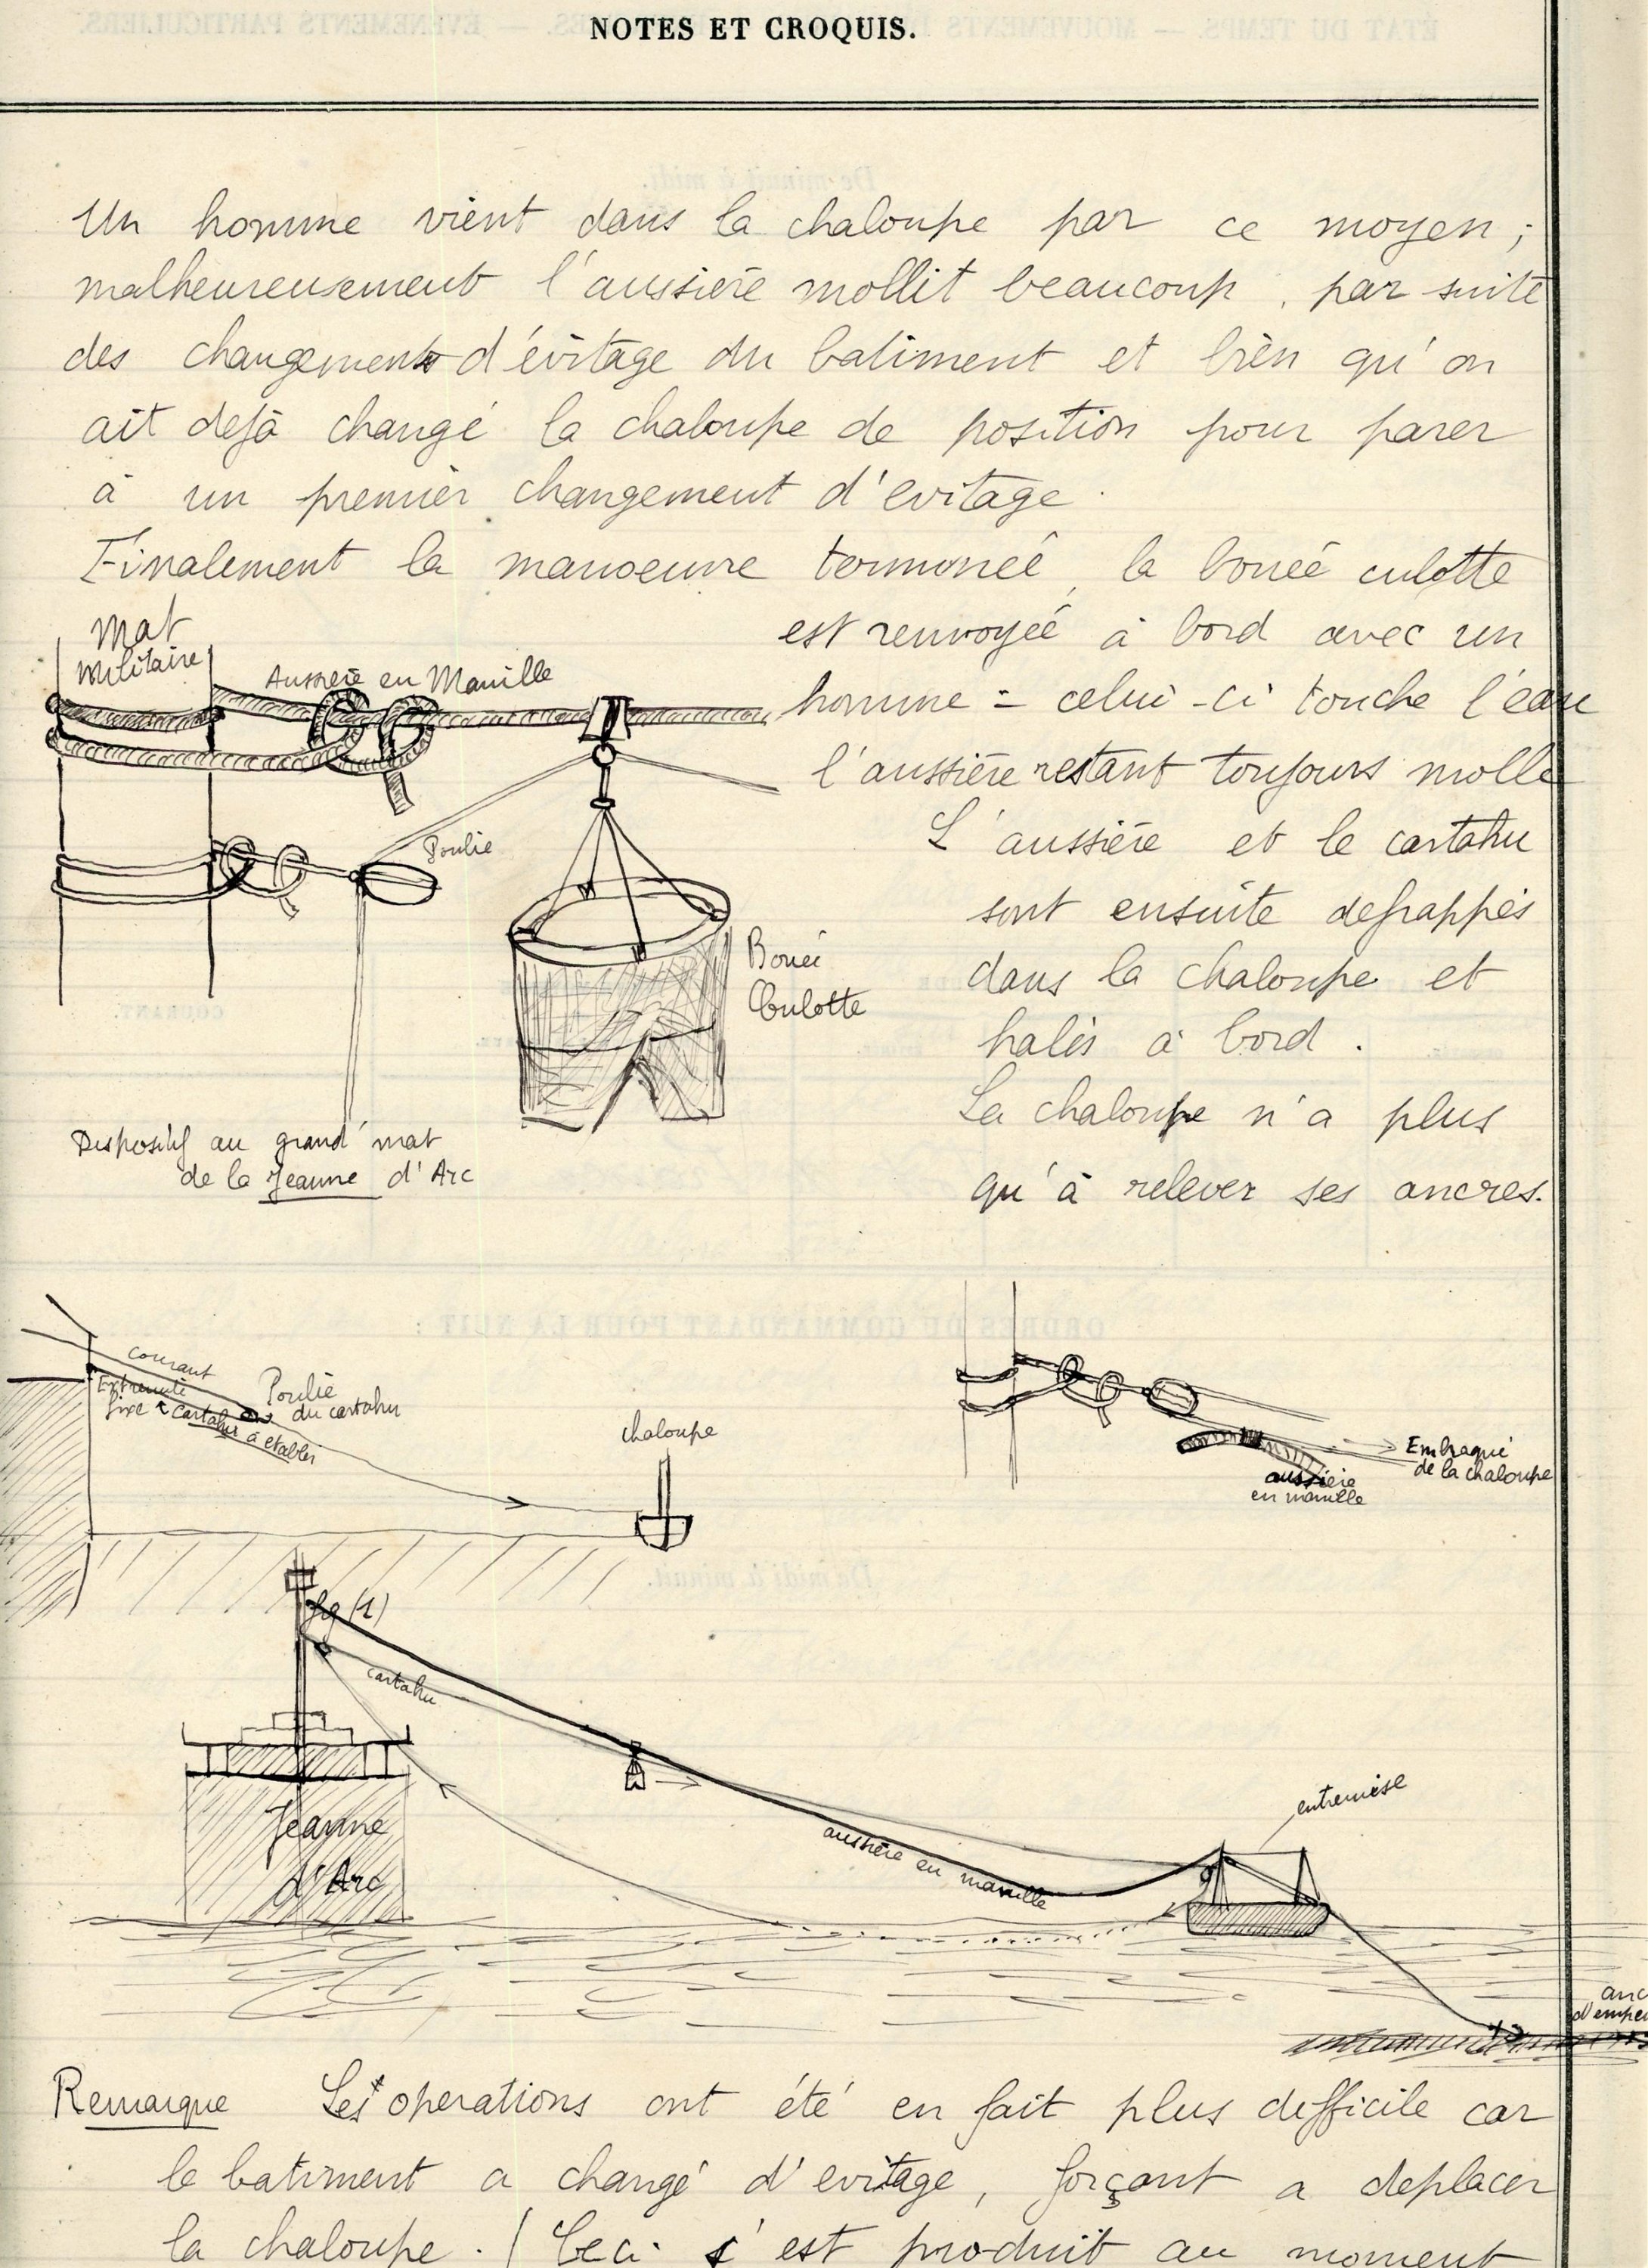 NOTES ET CROQUIS.
Un homme vient dans la chaloupe par ce moyen ;
malheureusement l'aussière mollit beaucoup, par suite
des changements d'évitage du batiment et bien qu'on
ait dejà changé la chaloupe de position pour parer
à un premier changement d'evitage.
Finalement la manoeuvre terminée, la bouée culotte
est renvoyée à bord avec un
homme = celui-ci touche l'eau
l'aussière restant toujours molle
L'aussière et le cartahu
sont ensuite defrappés
dans la chaloupe et
halés à bord.
La chaloupe n'a plus
qu'à relever ses ancres.
Mat
Militaire
Aussière en Manille
Poulie
Bouée
Culotte
Dispositif au grand mat
de la Jeanne d'Arc
courant
Extremité
fixe
Cartahu à etablir
Poulie
du cartahu
chaloupe
Embraqué
de la chaloupe
aussière
en manille
fig (1)
cartahu
Jeanne
d'Arc
aussière en manille
entremise
anc
d'empen
Remarque Les operations ont été en fait plus difficile car
le batiment a changé d'evitage, forçant a deplacer
la chaloupe. ( Ceci s'est produit au moment